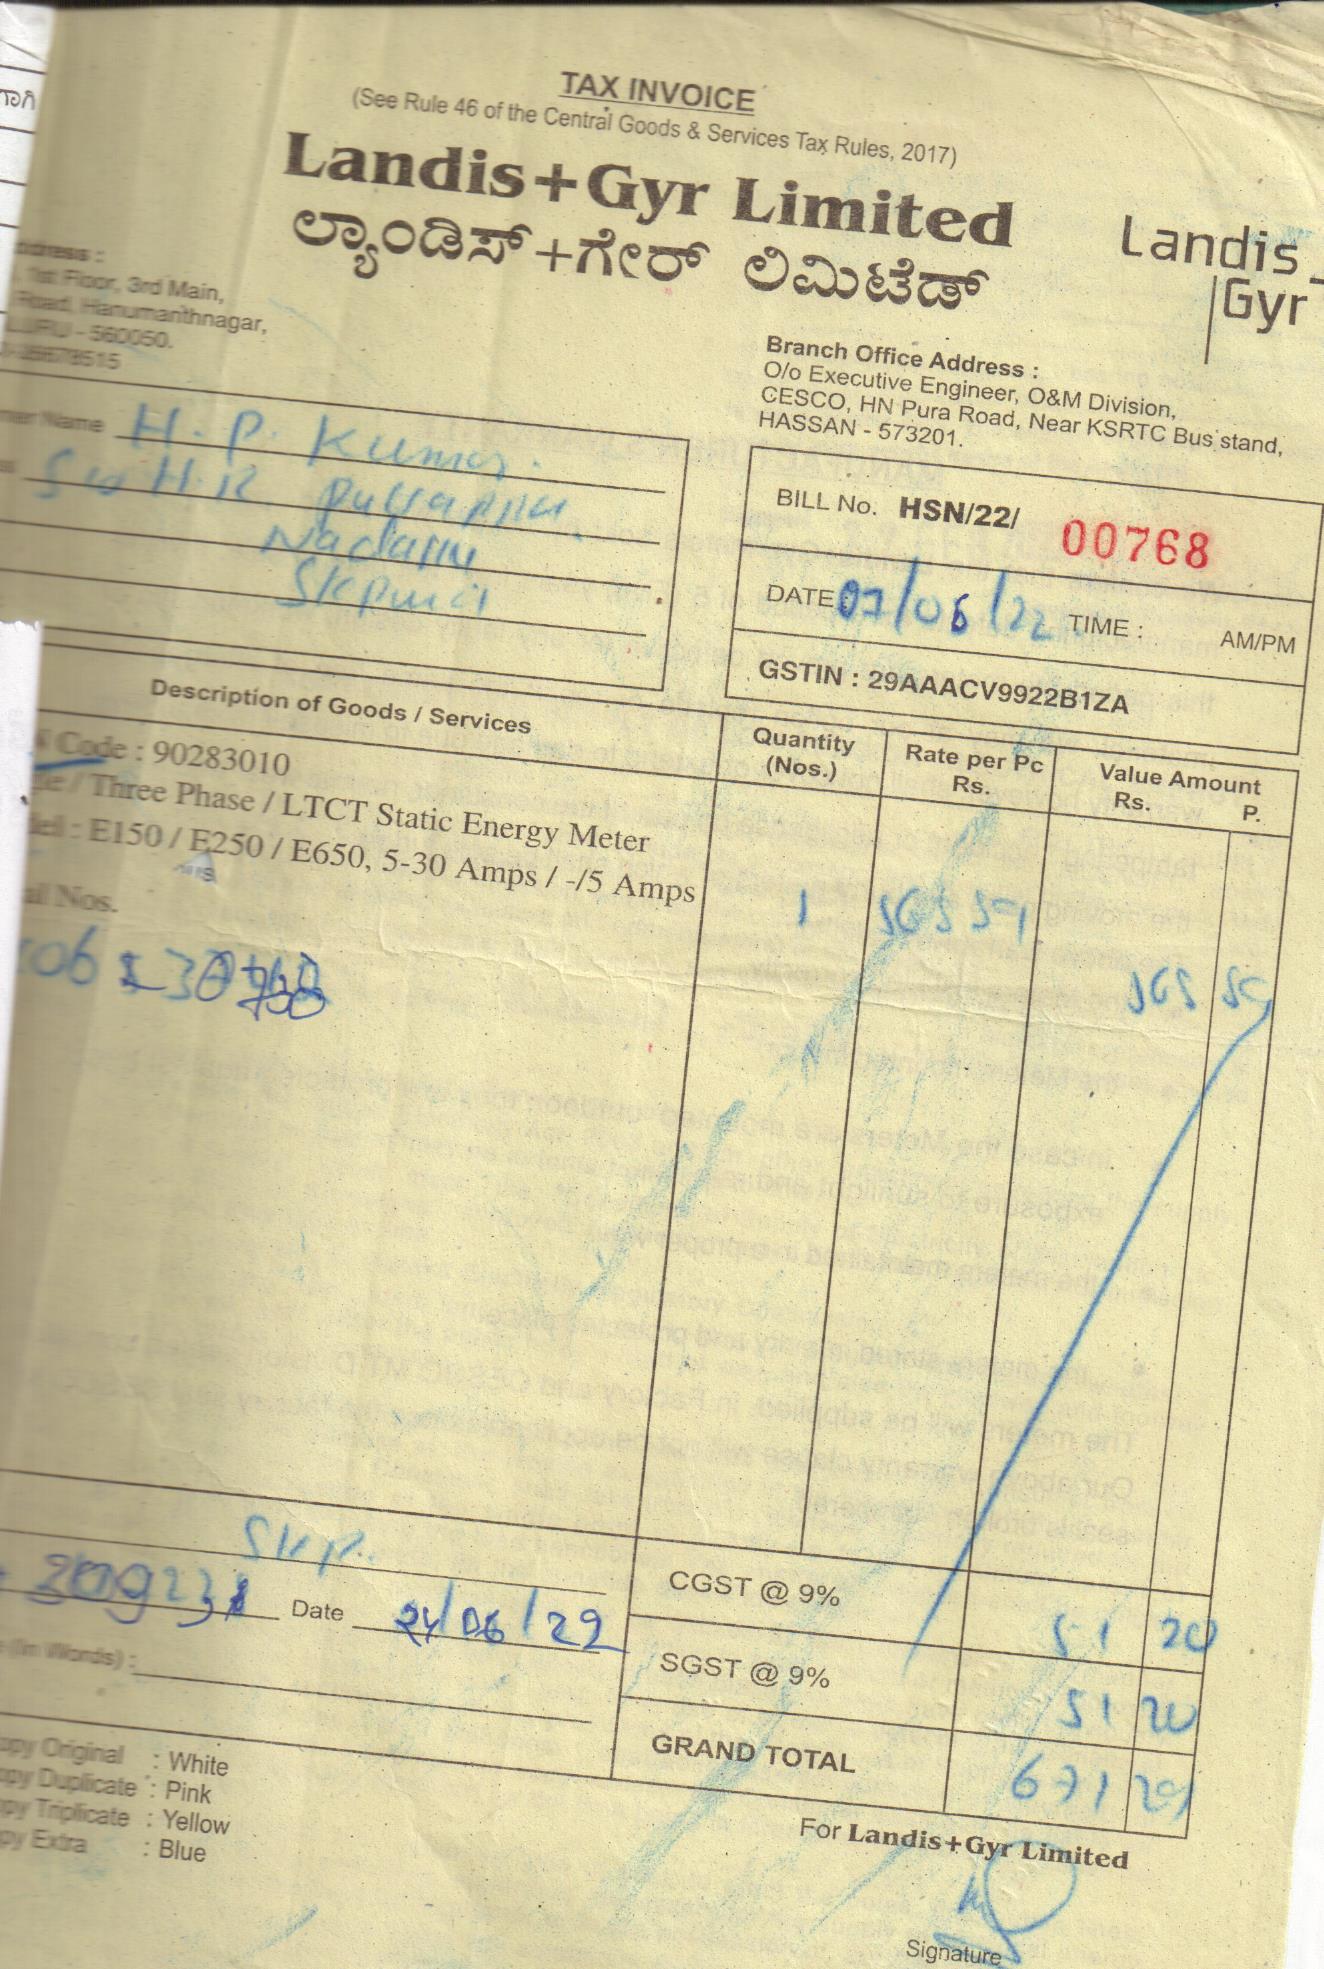 TAX INVOICE
(See Rule 46 of the Central Goods & Services Tax Rules, 2017)
Landis+Gyr Limited
ಲ್ಯಾಂಡಿಸ್+ಗೇರ್ ಲಿಮಿಟೆಡ್
Landis
Gyr
1st Floor, 3rd Main,
Road, Hanumanthnagar,
560050.
Branch Office Address :
O/o Executive Engineer, O&M Division,
CESCO, HN Pura Road, Near KSRTC Bus stand,
HASSAN - 573201.
Name H. P. Kumar.
BILL No. HSN/22/ 00768
DATE 07/06/22 TIME : AM/PM
GSTIN : 29AAACV9922B1ZA
Description of Goods / Services
Quantity
(Nos.)
Rate per Pc
Rs.
Value Amount
Rs. P.
Code : 90283010
/ Three Phase / LTCT Static Energy Meter
: E150 / E250 / E650, 5-30 Amps / -/5 Amps
Nos.
1
Skp.
Date 24/06/22
(In Words) :
CGST @ 9% 51 20
SGST @ 9% 51 20
GRAND TOTAL 671 29
Original : White
Duplicate : Pink
Triplicate : Yellow
Extra : Blue
For Landis+Gyr Limited
Signature